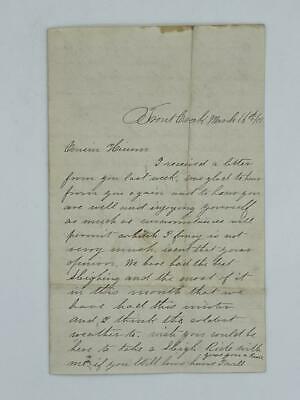 Trout Creek, March 16th
I received a letter
from you last week, was glad to hear
from you again and to know you
are well and enjoying yourself
as much as circumstances will
permit which I fancy is not
very much,
We have had the best
sleighing and the most of it
in this month that we
have had this winter
and I think the coldest
weather to. wish you could be
here to take a Sleigh Ride with
me, if you will come home I will
give you a